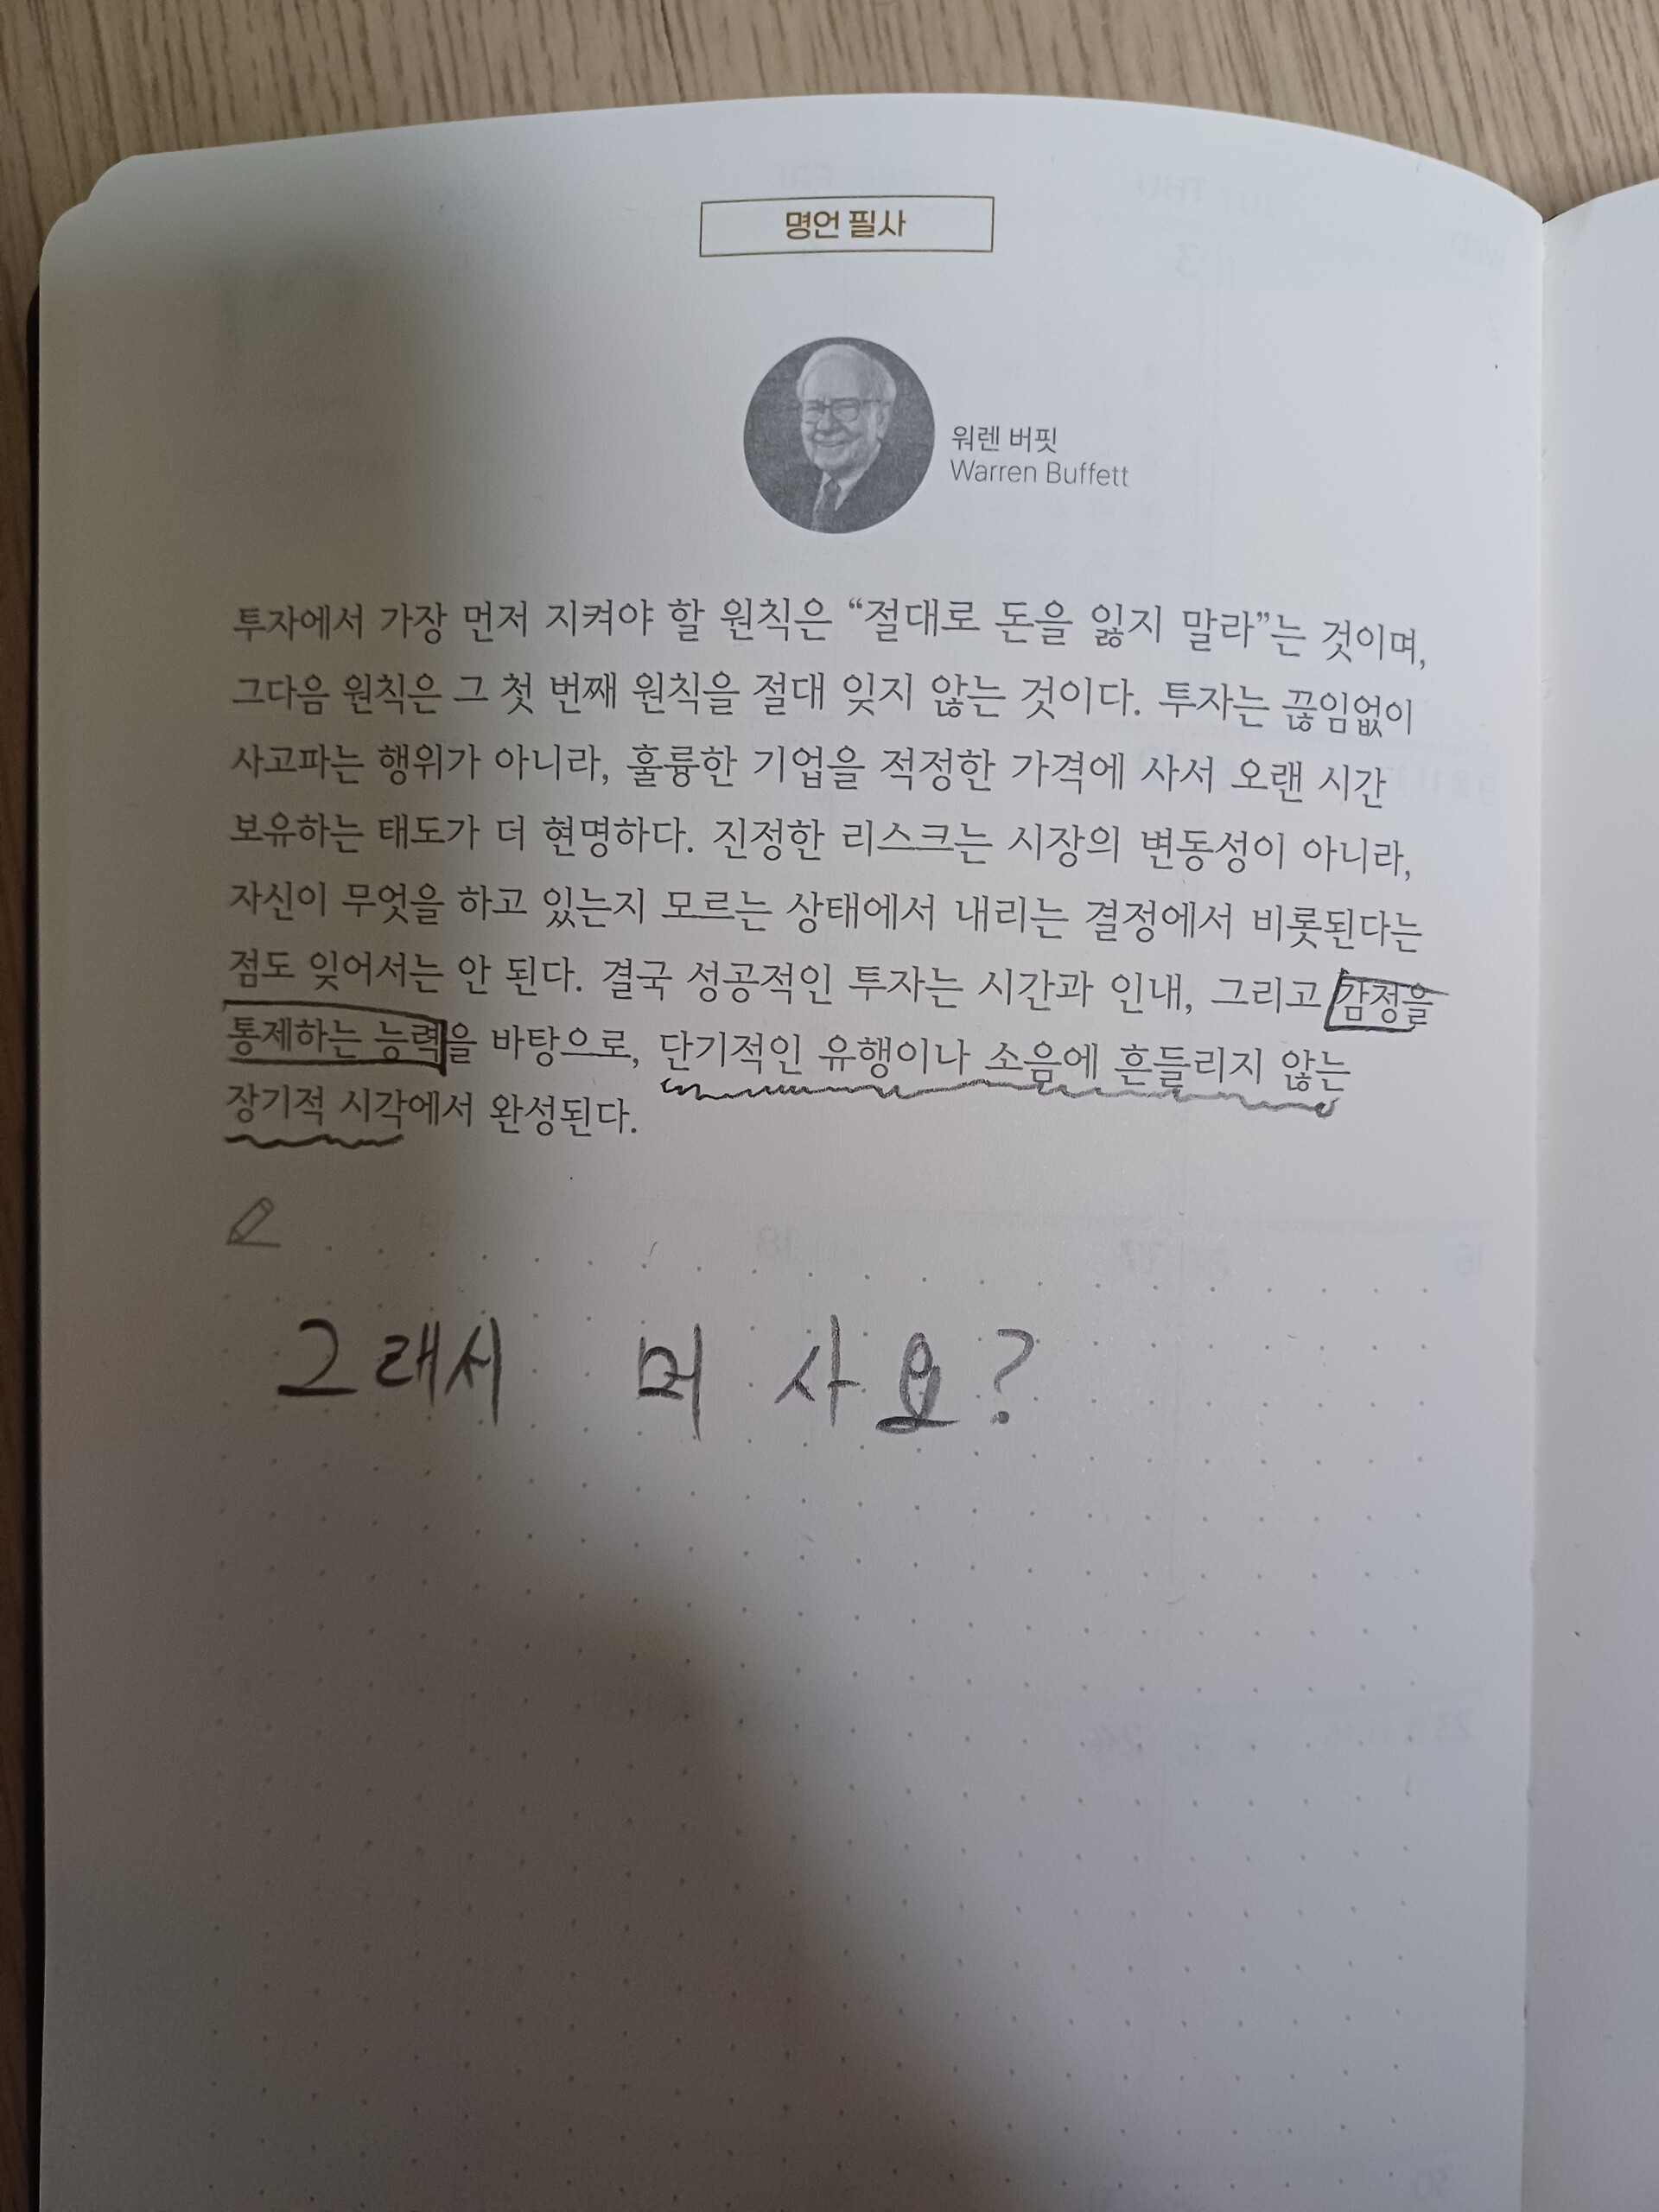 명언 필사
워렌 버핏
Warren Buffett
투자에서 가장 먼저 지켜야 할 원칙은 “절대로 돈을 잃지 말라”는 것이며,
그다음 원칙은 그 첫 번째 원칙을 절대 잊지 않는 것이다. 투자는 끊임없이
사고파는 행위가 아니라, 훌륭한 기업을 적정한 가격에 사서 오랜 시간
보유하는 태도가 더 현명하다. 진정한 리스크는 시장의 변동성이 아니라,
자신이 무엇을 하고 있는지 모르는 상태에서 내리는 결정에서 비롯된다는
점도 잊어서는 안 된다. 결국 성공적인 투자는 시간과 인내, 그리고 감정을
통제하는 능력을 바탕으로, 단기적인 유행이나 소음에 흔들리지 않는
장기적 시각에서 완성된다.
그래서 머 사요?